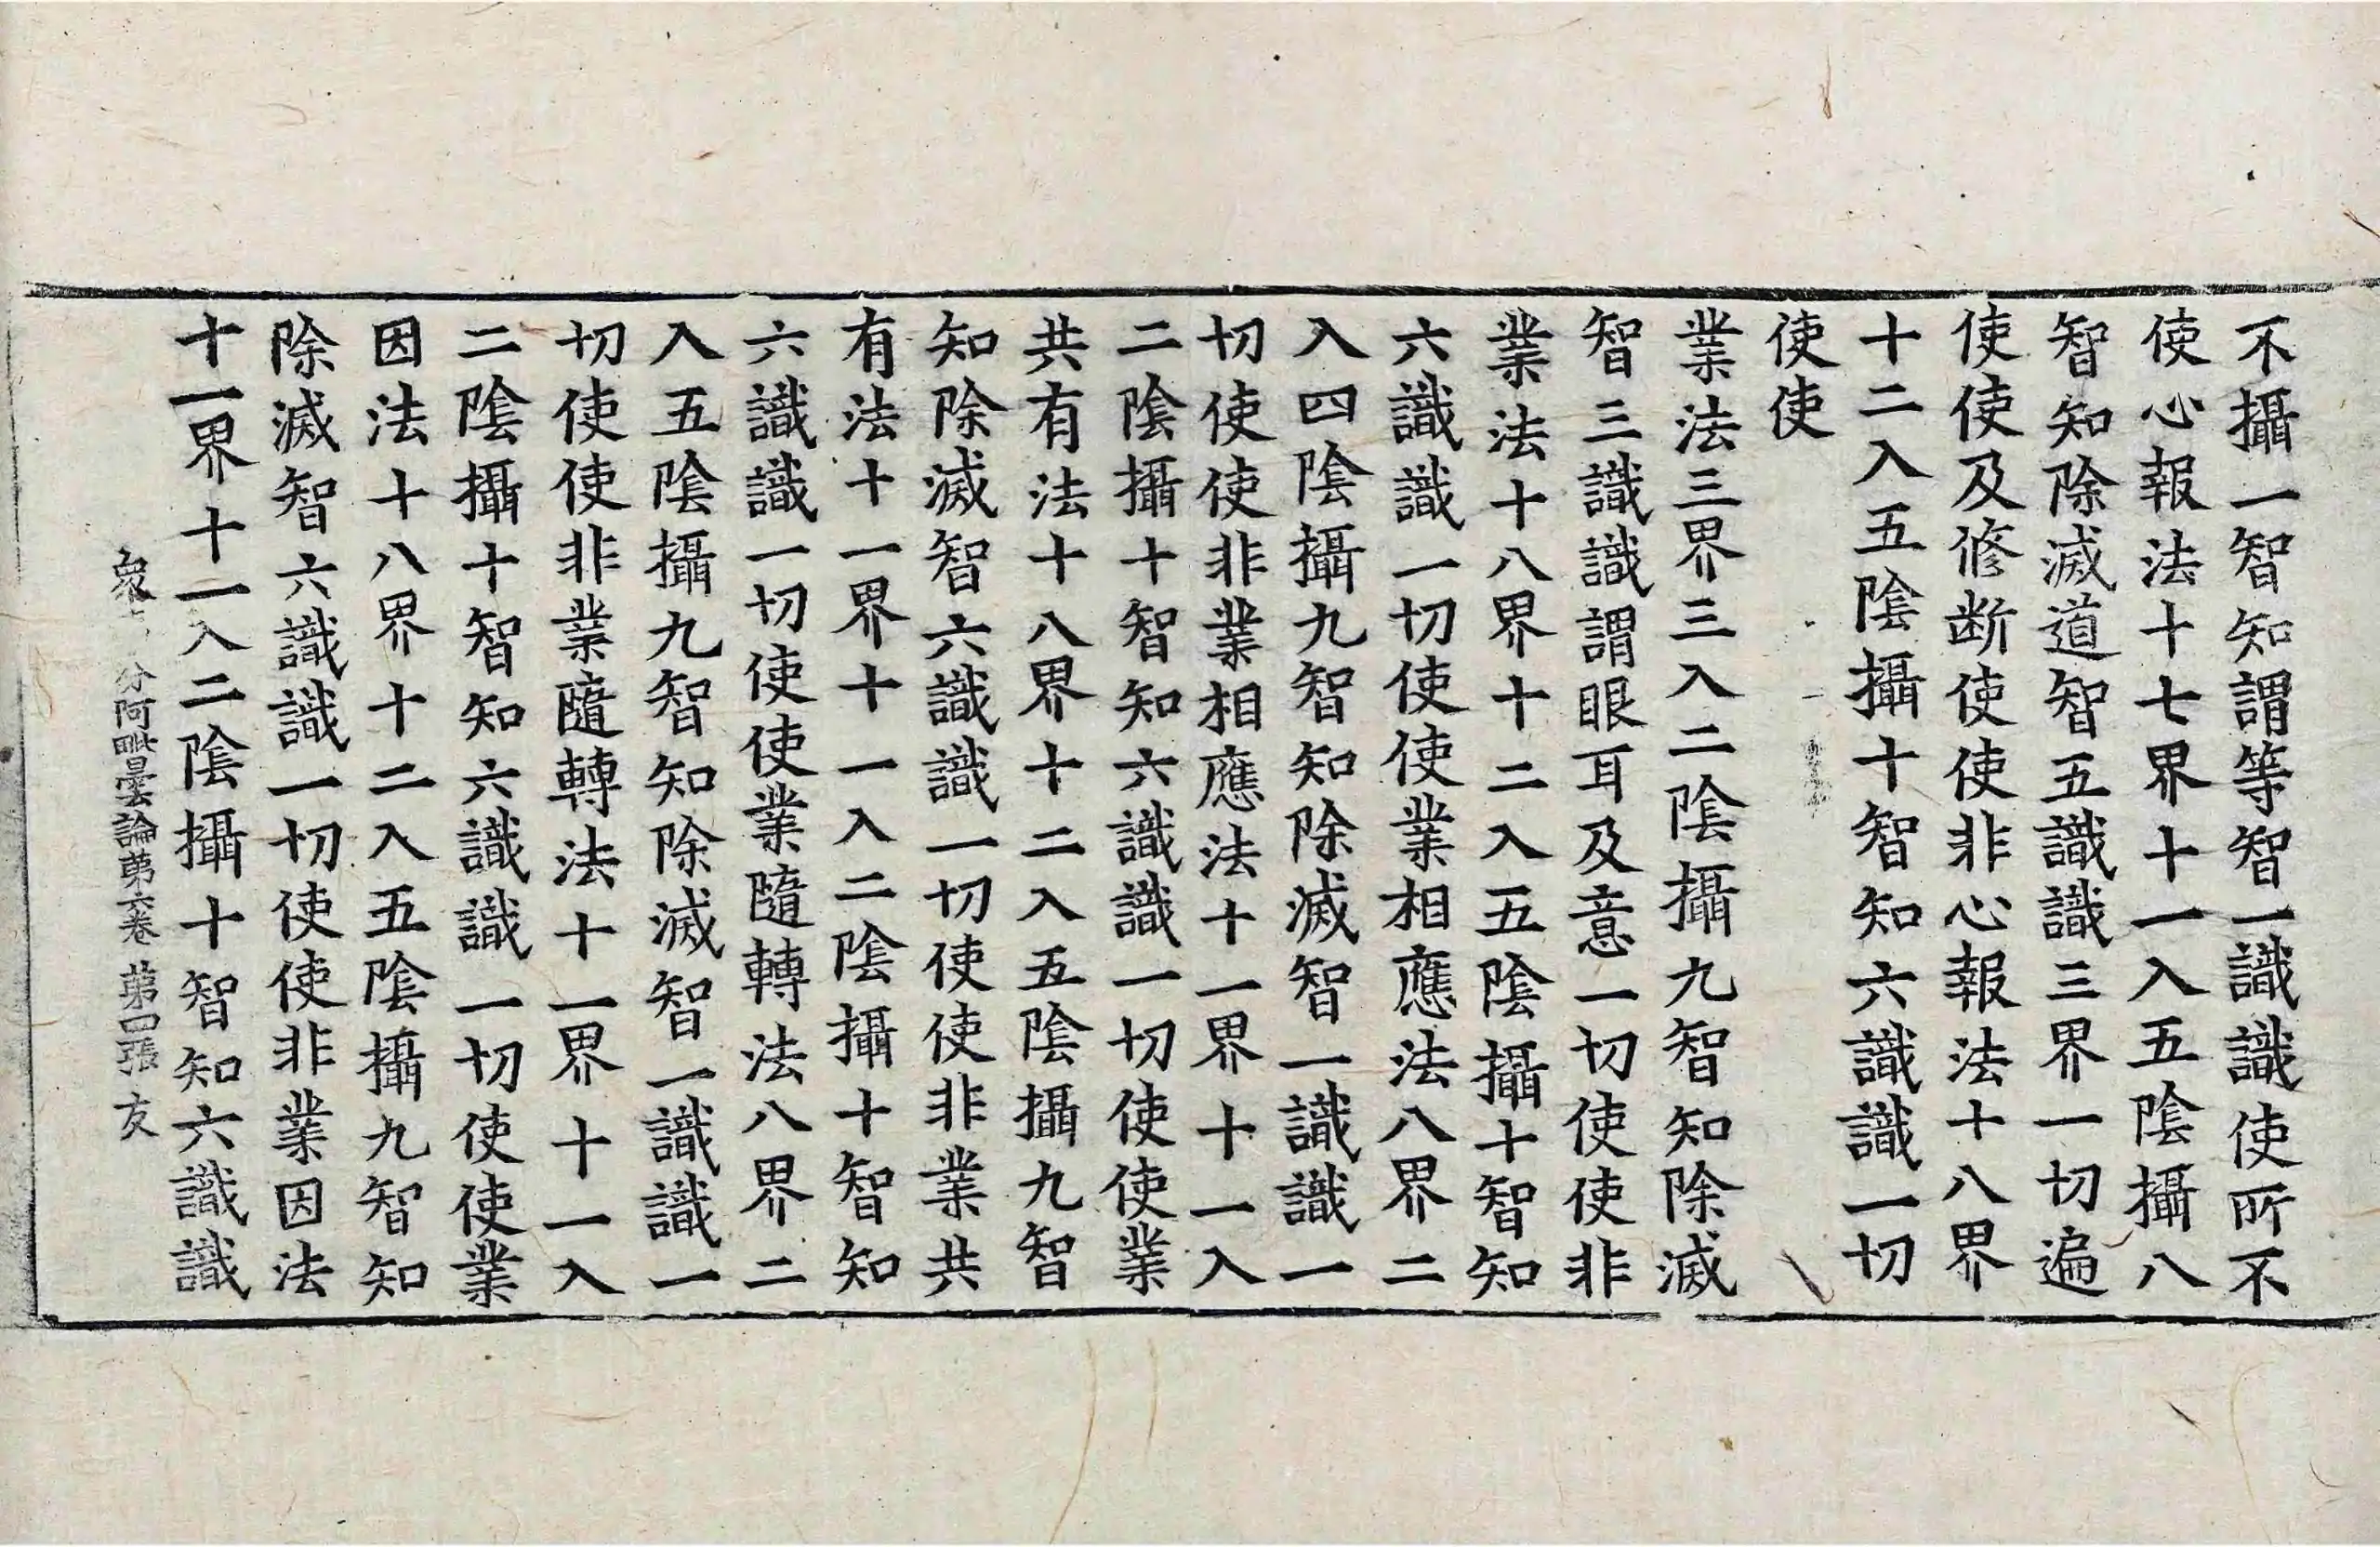 不攝一智知謂等智一識識使所不
使心報法十七界十一入五陰攝八
智知除滅道智五識識三界一切遍
使使及修断使使非心報法十八界
十二入五陰攝十智知六識識一切
使使
業法三界三入二陰攝九智知除滅
智三識識謂眼耳及意一切使使非
業法十八界十二入五陰攝十智知
六識識一切使使業相應法八界二
入四陰攝九智知除滅智一識識一
切使使非業相應法十一界十一入
二陰攝十智知六識識一切使使業
共有法十八界十二入五陰攝九智
知除滅智六識識一切使使非業共
有法十一界十一入二陰攝十智知
六識識一切使使業隨轉法八界二
入五陰攝九智知除滅智一識識一
切使使非業隨轉法十一界十一入
二陰攝十智知六識識一切使使業
因法十八界十二入五陰攝九智知
除滅智六識識一切使使非業因法
十一界十一入二陰攝十智知六識識
衆 分阿毗曇論苐六卷 苐四張 友